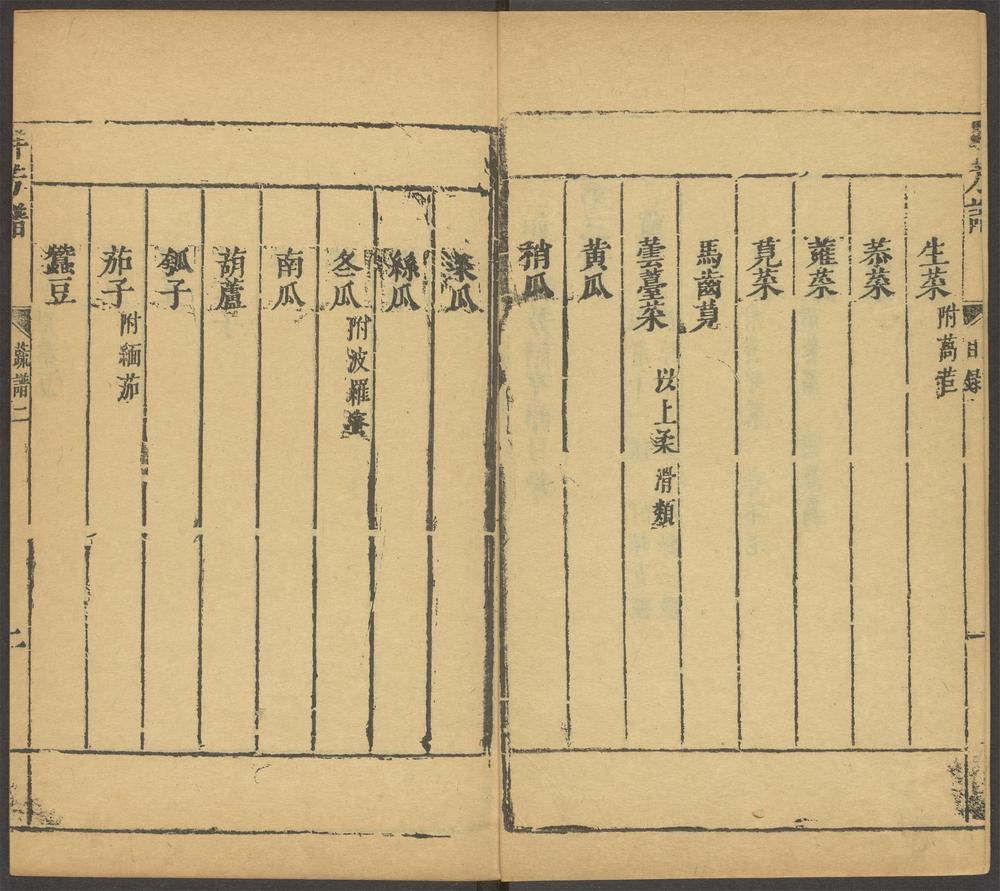 生菜 附萵苣
莙菜
蕹菜
莧菜
馬齒莧
蕓薹菜 以上柔滑類
黃瓜
稍瓜
菜瓜
絲瓜
冬瓜 附波羅蜜
南瓜
葫蘆
瓠子
茄子 附緬茄
蠶豆
芳譜
目錄
一
芳譜
蔬譜二
二